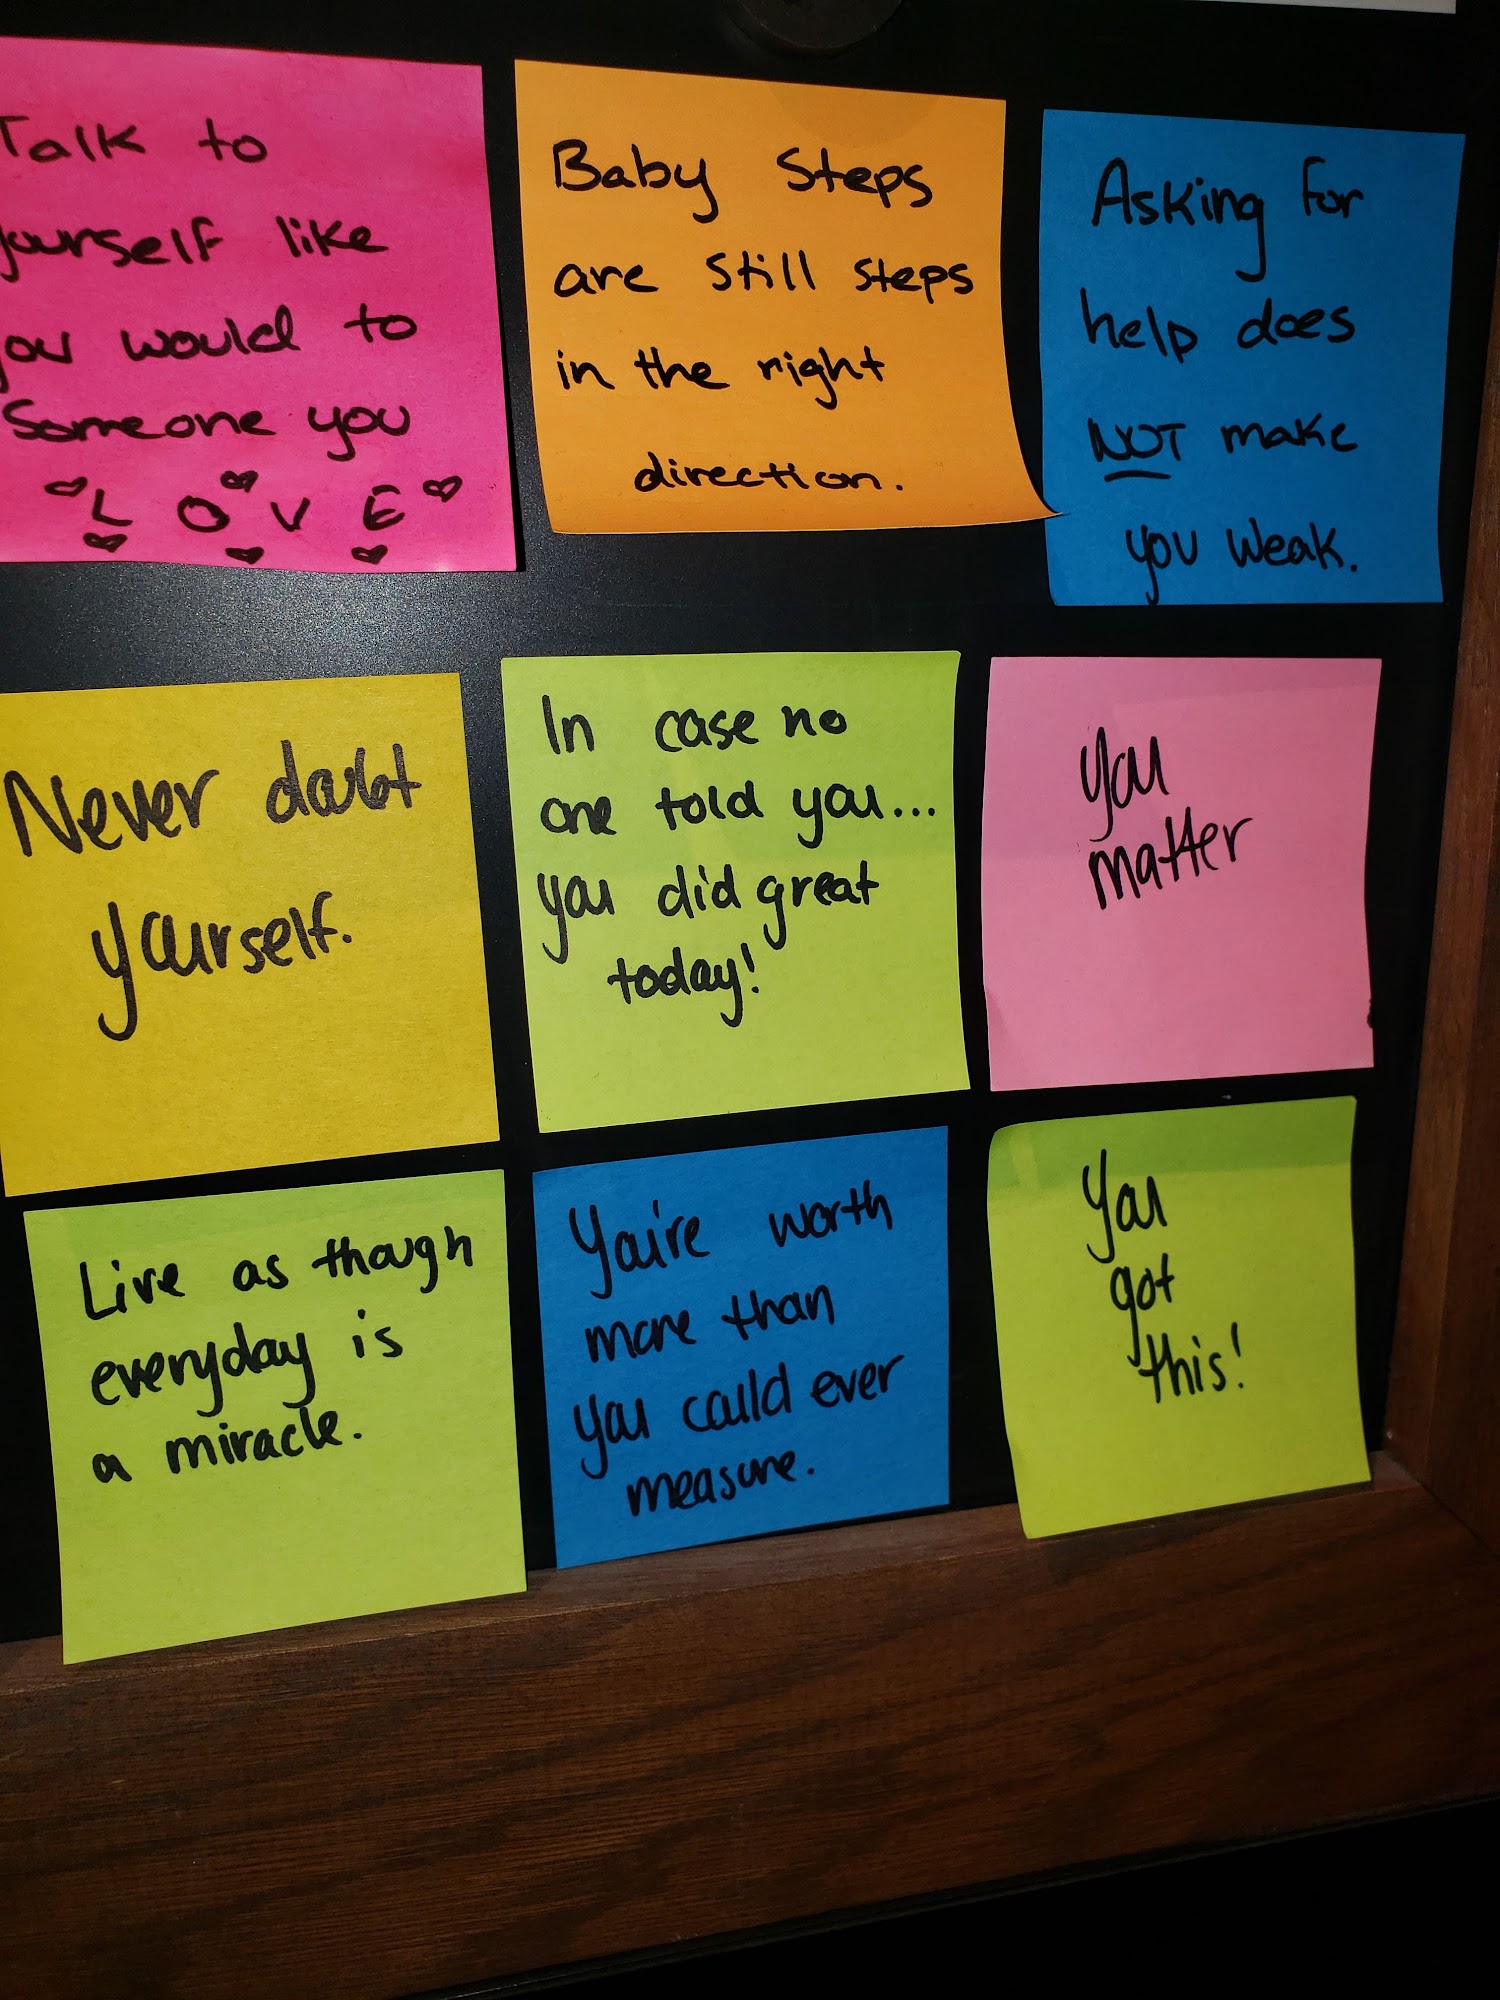 Talk to
yourself like
you would to
Someone you
LOVE
Baby Steps
are still steps
in the right
direction.
Asking for
help does
NOT make
you weak.
Never doubt
yourself.
In case no
one told you...
you did great
today!
You
matter
Live as though
everyday is
a miracle.
You're worth
more than
you could ever
measure.
You
got
this!